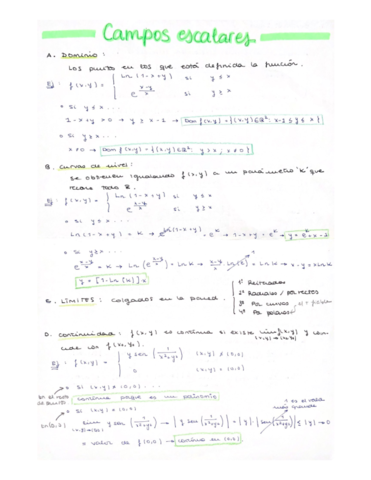 Campos escalares
A. Dominio:
Los punto en los que está definida la función.
Ej: f(x,y) = { ln(1-x+y) si y ≤ x
e^(x-y)/x si y ≥ x
• si y ≤ x ...
1-x+y > 0 → y > x-1 → Dom f(x,y) =
• si y ≥ x ...
x ≠ 0 → Dom f(x,y) = { (x,y) ∈ ℝ²: y ≥ x, x ≠ 0 }
B. Curvas de nivel:
Se obtienen igualando f(x,y) a un parámetro "k" que
recorre todo ℝ.
Ej: f(x,y) = { ln(1-x+y) si y ≤ x
e^(x-y)/x si y ≥ x
• si y ≤ x ...
ln(1-x+y) = k → e^ln(1-x+y) = e^k → 1-x+y = e^k → y = e^k + x - 1
• si y ≥ x ...
e^(x-y)/x = k → ln e^(x-y)/x = ln k → → x-y = x ln k
y = [1 - ln k] x
C. Límites: colgados en la pared.
1º Reiterados
2º Radiales / por rectas
3º Por curvas
4º Por polares
D. Continuidad: f(x,y) es continua si existe lim f(x,y) y
(x,y)→(x₀,y₀)
f(x₀,y₀)
Ej: f(x,y) = { y sen(1/(x²+y²)) (x,y) ≠ (0,0)
0 (x,y) = (0,0)
• si (x,y) ≠ (0,0) ...
continua porque es un
• si (x,y) = (0,0) ...
lim y sen(1/(x²+y²)) → |y sen(1/(x²+y²))| = |y| · |sen(1/(x²+y²))| ≤ |y| → 0
(x,y)→(0,0)
• valor de f(0,0) → continua en (0,0).